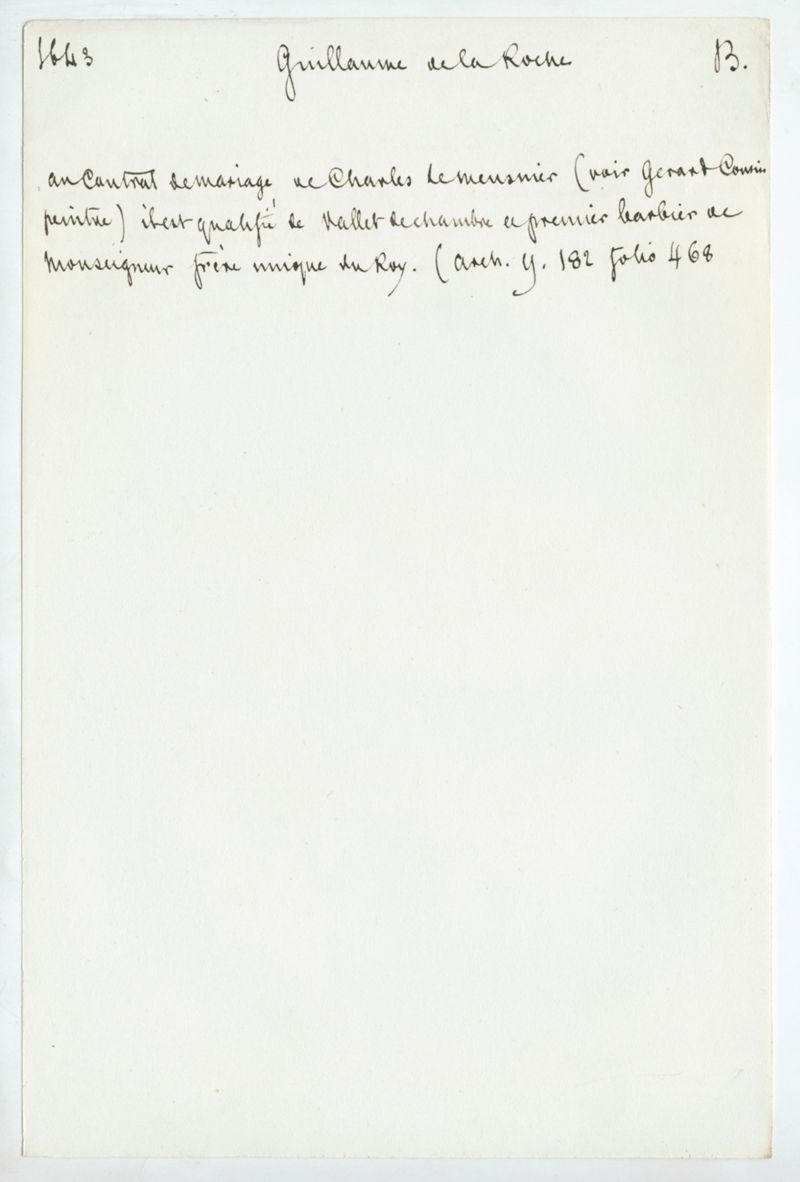 1643 Guillaume de la Roche B.
au Contrat de mariage de Charles Lemeusnier (voir Gerard Cousin
peintre) il est qualifié de Vallet de chambre et premier barbier de
Monseigneur frère unique du Roy. (Arch. Y. 182 folio 468